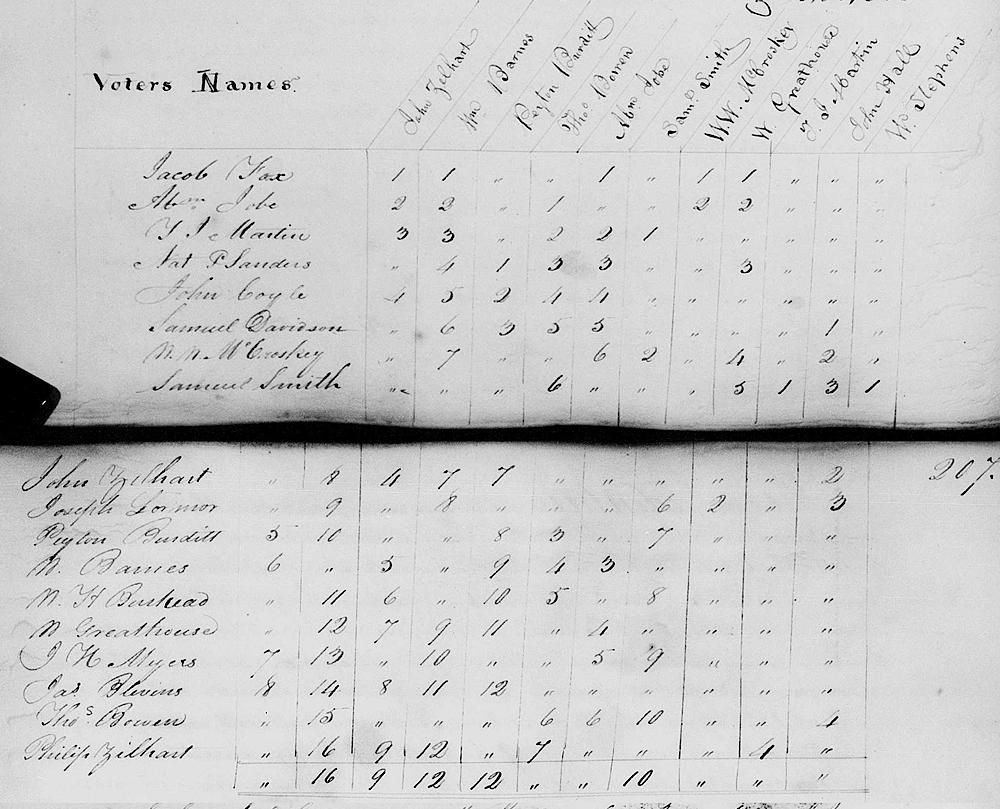 Voters Names
John Zilhart
Wm Barnes
Peyton Burditt
Thos Bowen
Abm Jobe
Saml Smith
W.W. McCroskey
W Greathouse
T. J Martin
John Hall
Wm Stephens
Jacob Fox 1 1 " " 1 " 1 1 " " "
Abm Jobe 2 2 " 1 " " 2 2 " " "
T J Martin 3 3 " 2 2 1 " " " " "
Nat P Sanders " 4 1 3 3 " " 3 " " "
John Coyle 4 5 2 4 4 " " " " " "
Samuel Davidson " 6 3 5 5 " " " " 1 "
W. W. McCroskey " 7 " " 6 2 " 4 " 2 "
Samuel Smith " " " 6 " " " 5 1 3 1
John Zilhart " 8 4 7 7 " " " " " 2
207.
Joseph Lormor " 9 " 8 " " " 6 2 " 3
Peyton Burditt 5 10 " " 8 3 " 7 " " "
W. Barnes 6 " 5 " 9 4 3 " " " "
W. H Bushead " 11 6 " 10 5 " 8 " " "
W Greathouse " 12 7 9 11 " 4 " " " "
J H Myers 7 13 " 10 " " 5 9 " " "
Jas. Blevins 8 14 8 11 12 " " " " " "
Thos. Bowen " 15 " " " 6 6 10 " " 4
Philip Zilhart " 16 9 12 " 7 " " " 4 "
" 16 9 12 12 " " 10 " " "